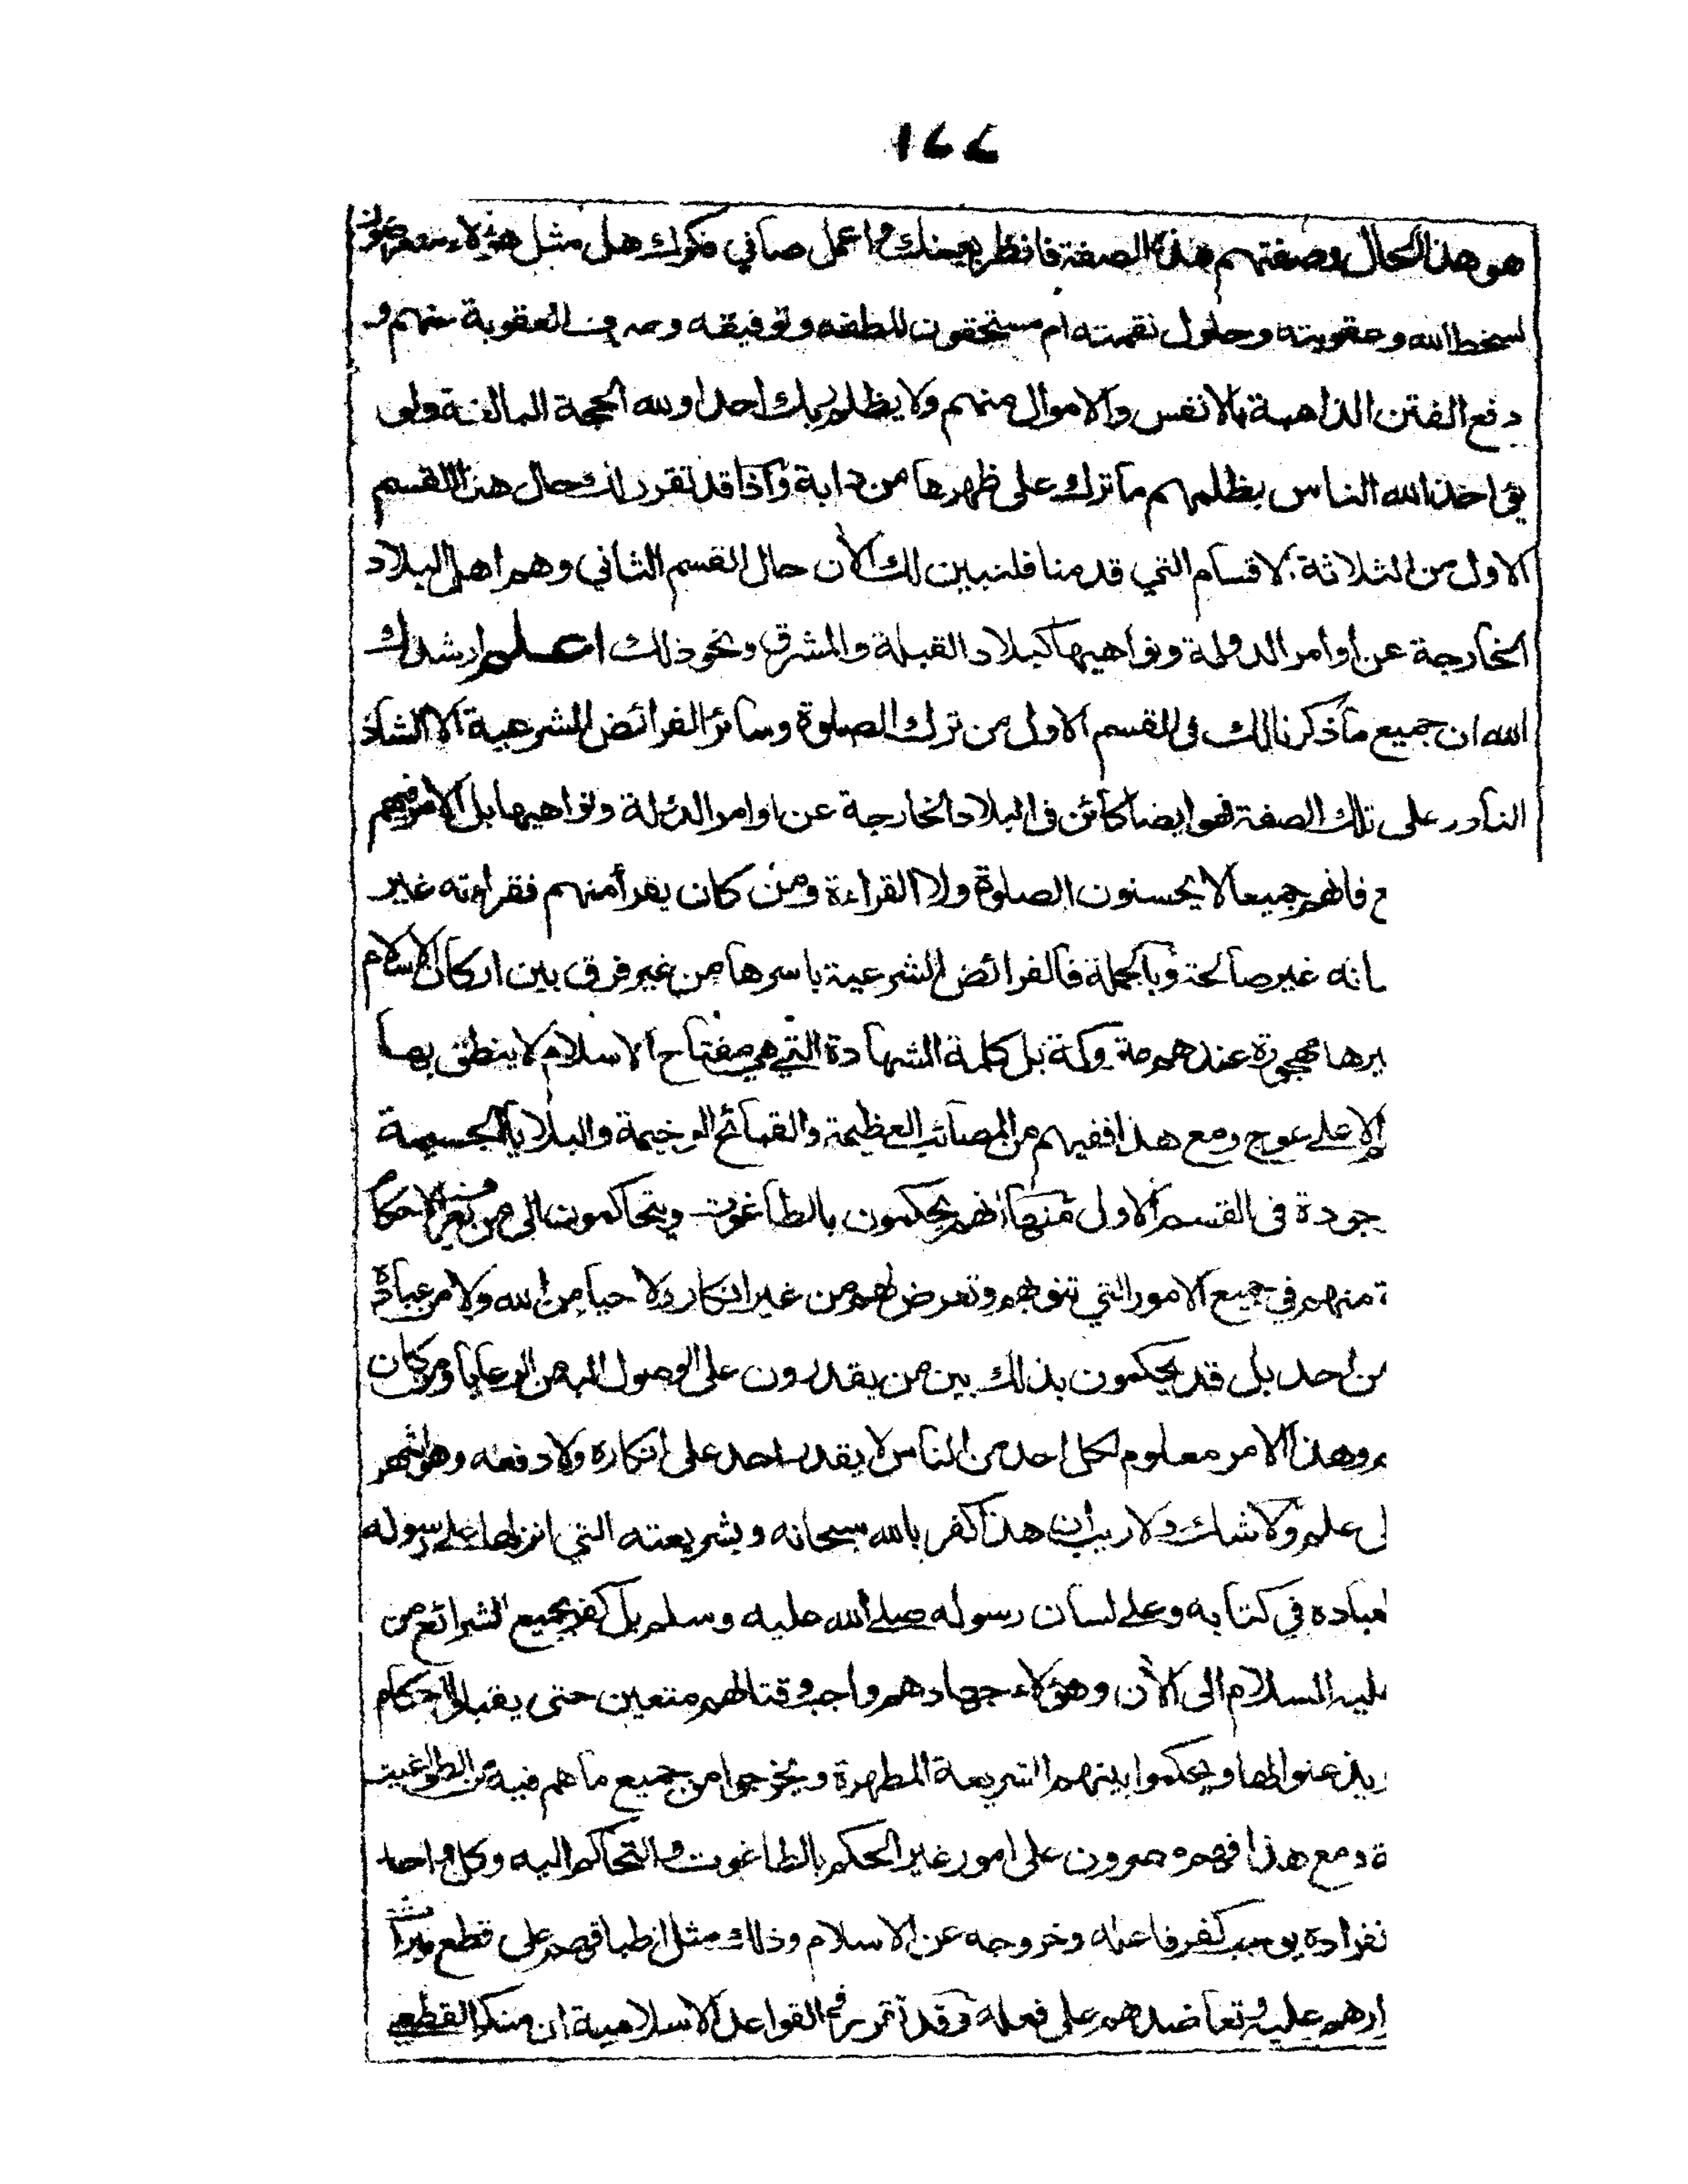 ١٤٤
هو هذا الحال وصفتهم هذه الصفة فانظر بعينك واعمل صافي فكرك هل مثل هؤلاء متعرضون
لسخط الله وعقوبته وحلول نقمته أم مستحقون للطفه وتوفيقه وصرف العقوبة عنهم و
دفع الفتن الذاهبة بالانفس والاموال منهم ولا يظلم ربك احدا ولله الحجة البالغة ولو
يؤاخذ الله الناس بظلمهم ما ترك على ظهرها من دابة واذا قد تقرر لك حال هذا القسم
الاول من الثلاثة الاقسام التي قدمنا فلنبين لك الآن حال القسم الثاني وهم اهل البلاد
الخارجة عن اوامر الدولة ونواهيها كبلاد القبلة والمشرق ونحو ذلك اعلم ارشدك
الله ان جميع ما ذكرنا لك في القسم الاول من ترك الصلوة وسائر الفرائض الشرعية الا الشاذ
النادر على تلك الصفة فهو ايضا كائن في البلاد الخارجة عن اوامر الدولة ونواهيها بل الامر فيهم
ع فانهم جميعا لا يحسنون الصلوة ولا القراءة ومن كان يقرأ منهم فقراءته غير
سانه غير صالحة وبالجملة فالفرائض الشرعية باسرها من غير فرق بين اركان الاسلام
يرها مهجورة عندهم متروكة بل كلمة الشهادة التي هي مفتاح الاسلام لا ينطق بها
الا على عوج ومع هذا ففيهم من المصائب العظيمة والقبائح الوخيمة والبلايا الجسيمة
جودة في القسم الاول منها انهم يحكمون بالطاغوت ويتحاكمون الى من يعرف الاحكام
ة منهم في جميع الامور التي تنوبهم وتعرض لهم من غير انكار ولا حيا من الله ولا من عباده
من احد بل قد يحكمون بذلك بين من يقدرون على الوصول اليه من الرعايا ومن كان
م وهذا الامر معلوم لكل احد من الناس لا يقدر احد على انكاره ولا دفعه وهو اشهر
لى علم ولا شك ولا ريب ان هذا كفر بالله سبحانه وبشريعته التي انزلها على رسوله
لعباده في كتابه وعلى لسان رسوله صلى الله عليه وسلم بل كفر بجميع الشرائع من
ليه السلام الى الآن وهؤلاء جهادهم واجب وقتالهم متعين حتى يقبلوا احكام
يذعنوا لها ويحكموا بينهم الشريعة المطهرة ويخرجوا من جميع ما هم فيه من الطواغيت
ة ومع هذا فهم مصرون على امور غير الحكم بالطاغوت والتحاكم اليه وكل واحد
نفراده يوجب كفر فاعله وخروجه عن الاسلام وذلك مثل اطباقهم على قطع ميراث
ارهم عليه وتعاضدهم على فعله وقد تقرر في القواعد الاسلامية ان منكر القطعي